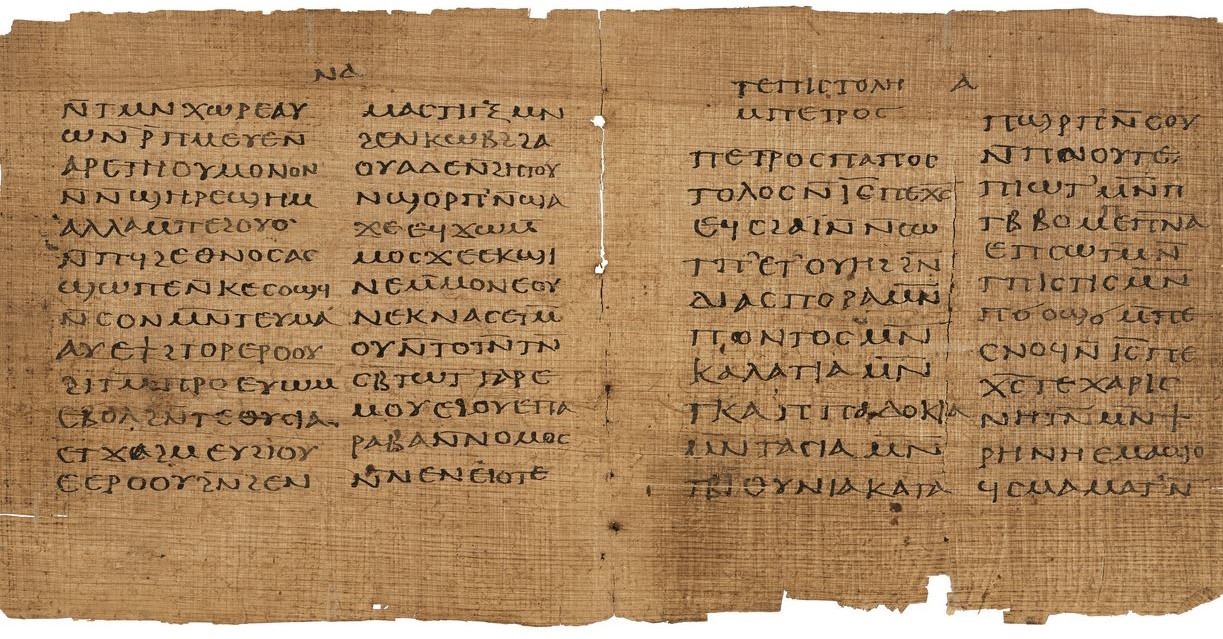 ⲛⲇ
ⲛ̄ⲧⲙⲛⲭⲱⲣⲉⲁⲩ
ⲱⲛ̄ⲣ̄ⲡⲙⲉⲩⲉⲛ
ⲁⲣⲉⲧⲏⲟⲩⲙⲟⲛⲟⲛ
ⲛ̄ⲛϣⲏⲣⲉϣⲏⲙ
ⲁⲗⲗⲁⲙ̄ⲡⲉϩⲟⲩⲟ
ⲙ̄ⲡϥϩⲉⲑⲛⲟⲥⲁⲥ
ϣⲱⲡⲉⲛⲕⲉⲥⲟⲡϥ
ⲛ̄ⲥⲟⲛⲙⲛⲧⲉⲩⲙⲁ
ⲁⲩⲉϯϩⲧⲟⲣⲉⲣⲟⲟⲩ
ϩⲓⲧⲙ̄ⲡⲣⲟⲉⲩⲱⲙ
ⲉⲃⲟⲗϩⲛⲧⲉⲑⲩⲥⲓⲁ
ⲉⲧϫⲁϩⲙⲉⲩϩⲓⲟⲩ
ⲉⲉⲣⲟⲟⲩϩⲛ̄ϩⲉⲛ
ⲙⲁⲥⲧⲓⲅⲝⲙⲛ
ϩⲉⲛⲕⲱⲃϩϩⲁ
ⲟⲩⲁⲇⲉⲛϩⲏⲧⲟⲩ
ⲛϣⲟⲣⲡⲛ̄ϣⲁ
ϫⲉⲉϥϫⲱⲙ̄
ⲙⲟⲥϫⲉⲉⲕϣⲓ
ⲛⲉⲙ̄ⲙⲟⲛⲉⲟⲩ
ⲛⲉⲕⲛⲁⲥⲉⲧⲙ
ⲟⲩⲛ̄ⲧⲟⲧⲛ̄ⲧⲛ̄
ⲥⲃⲧⲱⲧⲅⲁⲣⲉ
ⲙⲟⲩⲉϩⲟⲩⲉⲡⲁ
ⲣⲁⲃⲁⲛ̄ⲛⲟⲙⲟⲥ
ⲛ̄ⲛⲉⲛⲉⲓⲟⲧⲉ
ⲧⲉⲡⲓⲥⲧⲟⲗⲏ ⲁ
ⲙⲡⲉⲧⲣⲟⲥ
ⲡⲉⲧⲣⲟⲥⲡⲁⲡⲟⲥ
ⲧⲟⲗⲟⲥⲛ̄ⲓ̄ⲥ̄ⲡⲉⲭ̄ⲥ̄
ⲉϥⲥϩⲁⲓ̈ⲛ̄ⲛⲥⲱ
ⲧⲡ̄ⲉⲧⲟⲩⲏϩϩⲛ̄
ⲇⲓⲁⲥⲡⲟⲣⲁⲙ̄ⲛ̄
ⲡⲟⲛⲧⲟⲥⲙ̄ⲛ̄
ⲕⲁⲗⲁⲧⲓⲁⲙ̄ⲛ̄
ⲧⲕⲁⲡⲡⲁⲇⲟⲕⲓⲁ
ⲙⲛⲧⲁⲥⲓⲁⲙ̄ⲛ̄
ⲧⲃⲓⲑⲩⲛⲓⲁⲕⲁⲧⲁ
ⲡϣⲣⲡ̄ⲛ̄ⲥⲟⲩ
ⲛ̄ⲡⲛⲟⲩⲧⲉ
ⲡⲓⲱⲧⲙ̄ⲛ̄ⲡ
ⲧⲃⲃⲟⲙ̄ⲡⲉⲡ̄ⲛ̄ⲁ̄
ⲉⲡⲥⲱⲧⲙⲙⲛ̄
ⲧⲡⲓⲥⲧⲓⲥⲙⲛ
ⲡϭⲟϣϭϣⲙ̄ⲡⲉ
ⲥⲛⲟϥⲛ̄ⲓ̄ⲥ̄ⲡⲉ
ⲭ̄ⲥ̄ⲧⲉⲭⲁⲣⲓⲥ
ⲛⲏⲧⲛ̄ⲙⲛϯ
ⲣⲏⲛⲏⲉⲙⲁϣⲟ
ϥⲥⲙⲁⲙⲁⲁⲧⲛ̄